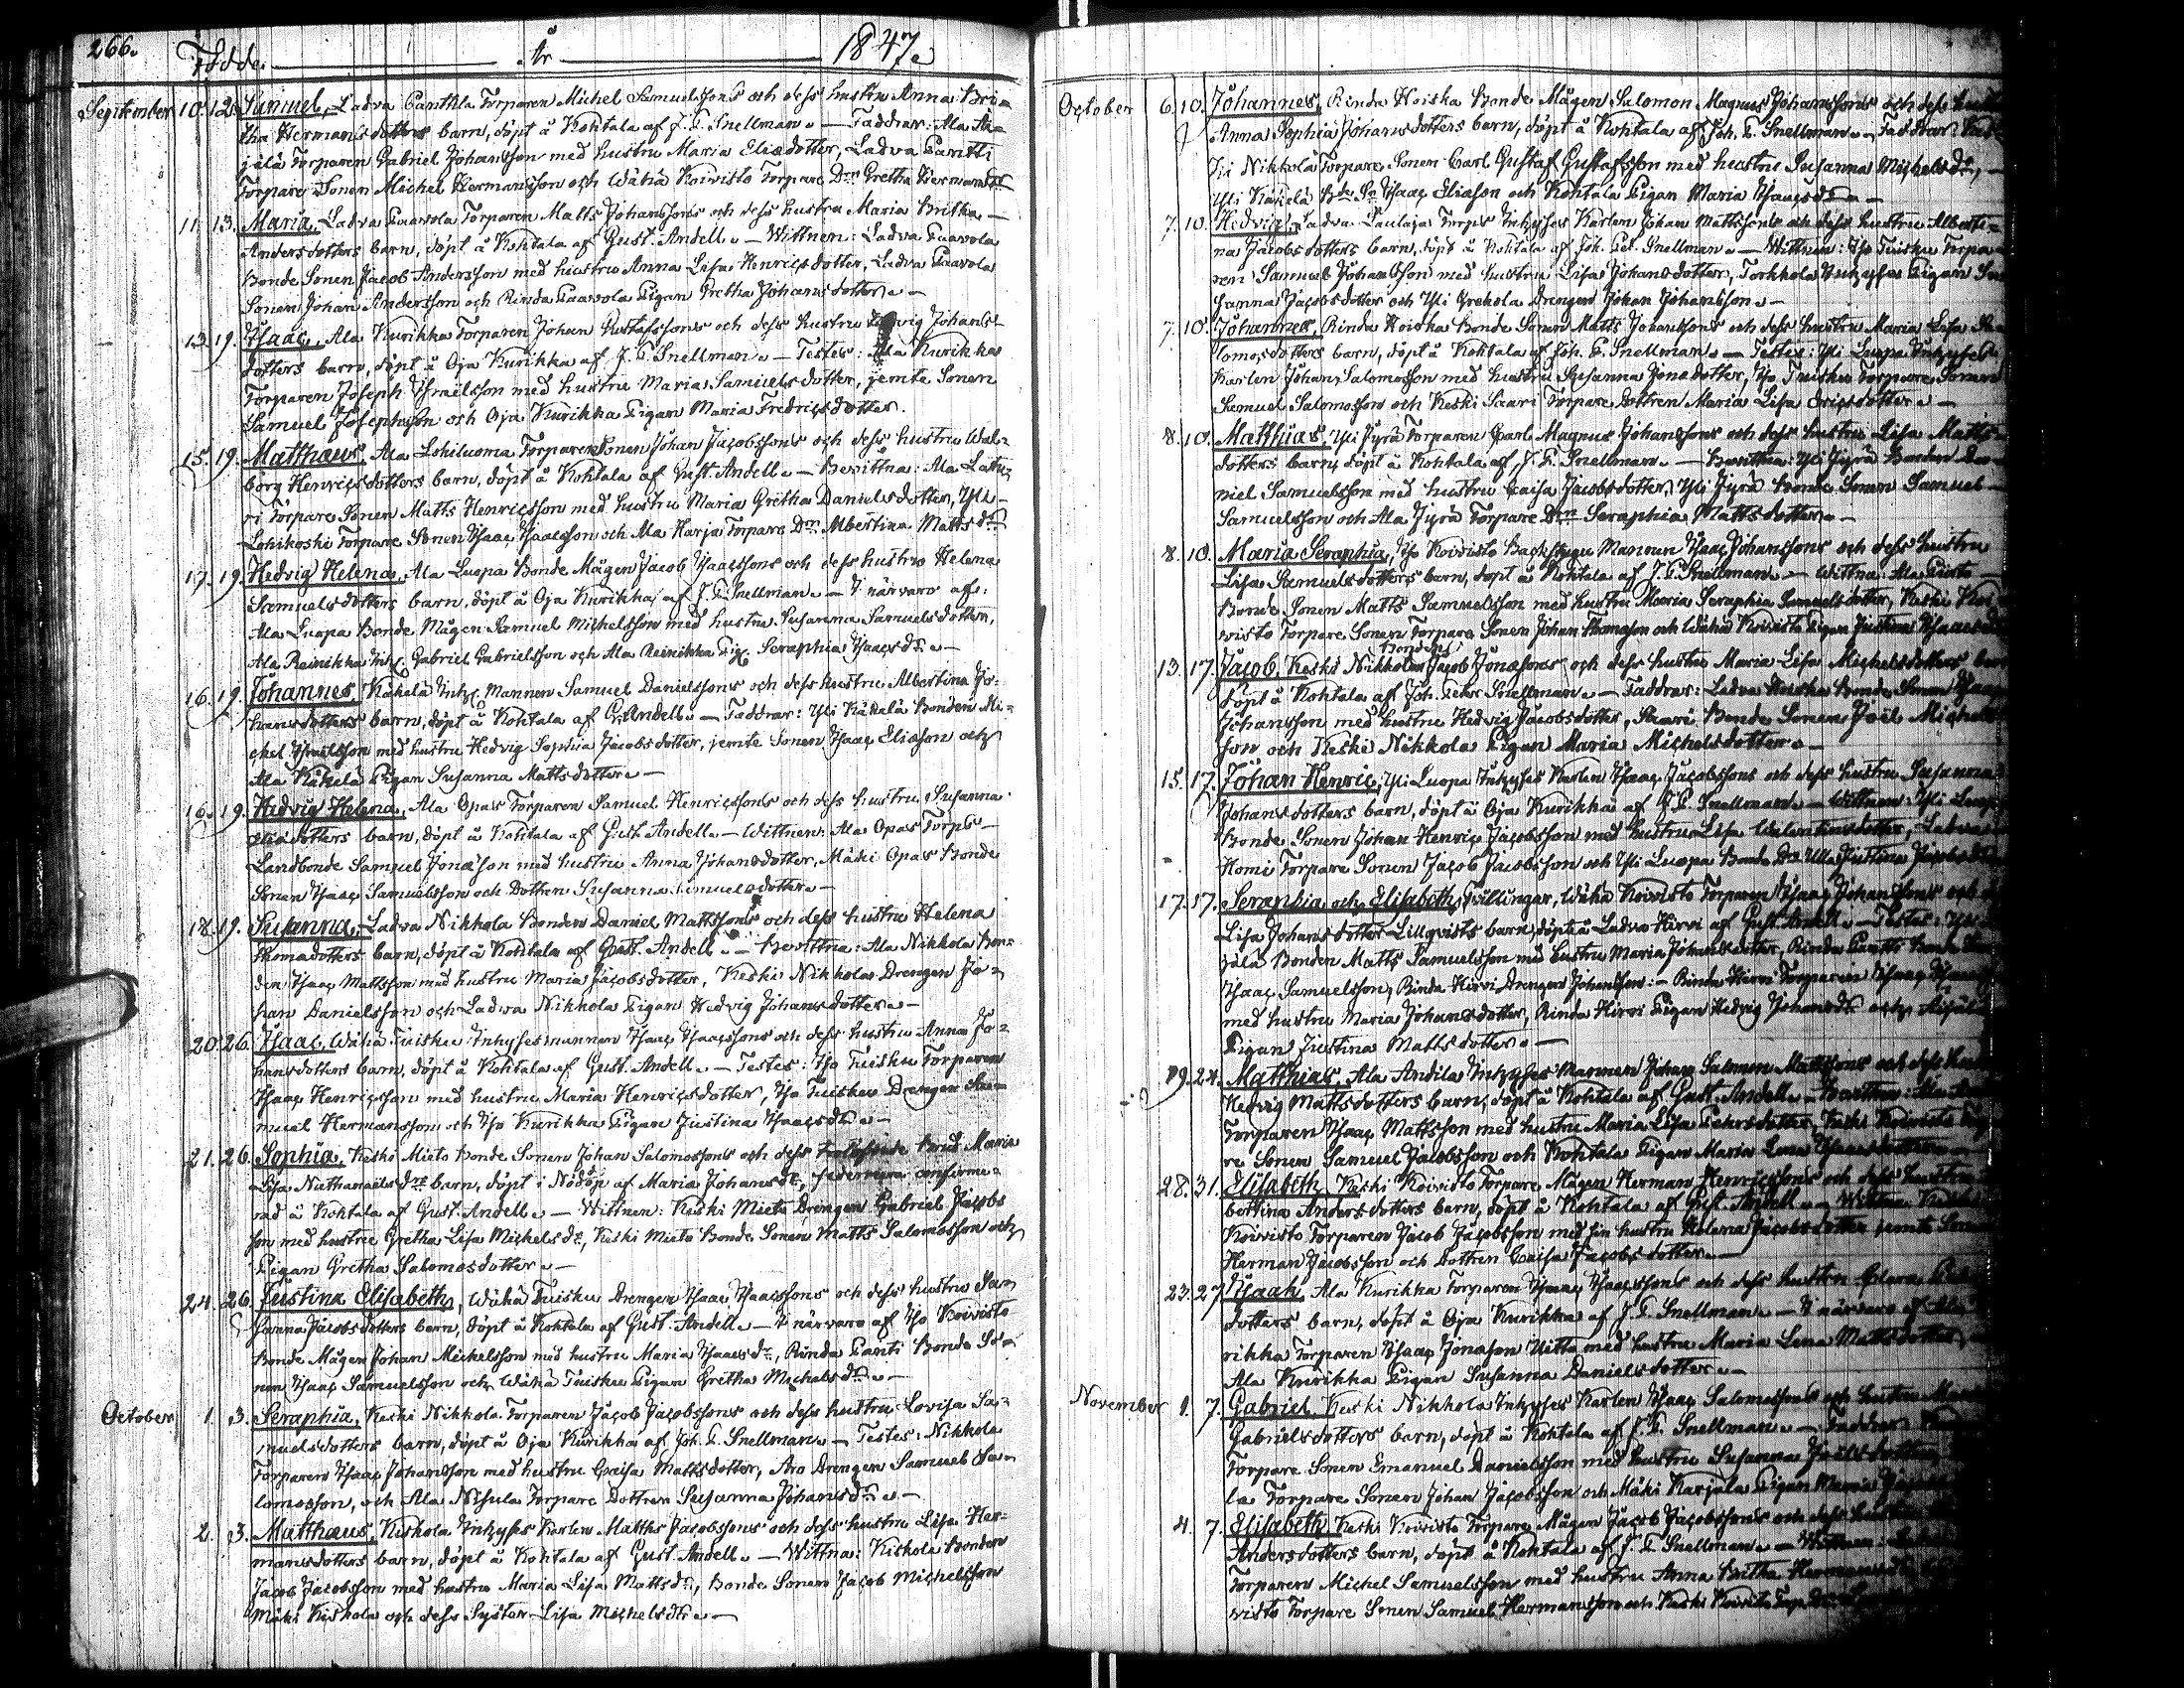 266.
Födde. År 1847.
September 10. 12. Samuel, Ladva Panttila Torparen Michel Samuelssons och dess hustru Anna Bri=
tha Hermansdotters barn, döpt å Kohtala af J. P. Snellman. — Faddrar: Ala
jälä Torparen Gabriel Johansson med hustru Maria Eliædotter, Ladva Pantti
Torpare Sonen Michel Hermansson och Wähä Koivisto Torpare Drn Gretha Hermansdr
11. 13. Maria, Ladva Paavola Torparen Matts Johanssons och dess hustru Maria Britha
Andersdotters barn, döpt å Kohtala af Gust. Andell. — Wittnen: Ladva Paavola
Bonde Sonen Jacob Andersson med hustru Anna Lisa Henricsdotter, Ladva Paavola
Sonen Johan Andersson och Rinda Paavola Pigan Gretha Johansdotter. —
13. 19. Isaac, Ala Kurikka Torparen Johan Gustafssons och dess hustru Hedvig Johans-
dotters barn, döpt å Oja Kurikka af J. P. Snellman. — Testes: Ala Kurikka
Torparen Joseph Israelsson med hustru Maria Samuelsdotter, jemte Sonen
Samuel Josephsson och Oja Kurikka Pigan Maria Fredricsdotter.
15. 19. Matthæus, Ala Lohiluoma Torpare Sonen Johan Jacobssons och dess hustru Wal=
borg Henricsdotters barn, döpt å Kohtala af Gust. Andell. — Bevittna: Ala
ri Torpare Sonen Matts Henricsson med hustru Maria Gretha Danielsdotter, Yli
Lohikoski Torpare Sonen Isaac Isaacsson och Ala Harja Torpare Drn Albertina Mattsdr
17. 19. Hedvig Helena, Ala Luopa Bonde Mågen Jacob Isaacssons och dess hustru Helena
Samuelsdotters barn, döpt å Oja Kurikka af J. P. Snellman. — I närvaro af:
Ala Luopa Bonde Mågen Samuel Michelsson med hustru Susanna Samuelsdotter,
Ala Reinikka Gabriel Gabrielsson och Ala Reinikka Pig. Seraphia Isaacsdr. —
16. 19. Johannes, Käkelä Inh. Mannen Samuel Danielssons och dess hustru Albertina Jo=
hansdotters barn, döpt å Kohtala af G. Andell. — Faddrar: Yli Käkelä Bonden Mi=
chel Israelsson med hustru Hedvig Sophia Jacobsdotter, jemte Sonen Isaac Eliæson och
Ala Käkelä Pigan Susanna Mattsdotter. —
16. 19. Hedvig Helena, Ala Opas Torparen Samuel Henricssons och dess hustru Susanna
Eliædotters barn, döpt å Kohtala af Gust. Andell. — Wittnen: Ala Opas Torps
Landbonde Samuel Jonæson med hustru Anna Johansdotter, Mäki Opas Bonde
Sonen Isaac Samuelsson och Dottren Susanna Samuelsdotter. —
18. 19. Susanna, Ladva Nikkola Bonden Daniel Mattssons och dess hustru Helena
Thomædotters barn, döpt å Kohtala af Gust. Andell. — Bevittna: Ala Nikkola Bon=
den Isaac Mattsson med hustru Maria Jacobsdotter, Keski Nikkola Drengen Jo=
han Danielsson och Ladva Nikkola Pigan Hedvig Johansdotter. —
20. 26. Isaac, Wähä Tuisku Inhysesmannen Isaac Isaacssons och dess hustru Anna Jo=
hansdotters barn, döpt å Kohtala af Gust. Andell. — Testes: Iso Tuisku Torparen
Isaac Henricsson med hustru Maria Henricsdotter, Iso Tuisku Drengen Sa=
muel Hermansson och Iso Kurikka Pigan Justina Isaacsdr. —
21. 26. Sophia, Keski Mieto Bonde Sonen Johan Salomossons och dess Brud Maria
Lisa Nathanaëlsdrs barn, döpt i Nöddop af Maria Johansdr, sedermera confirme=
rad å Kohtala af Gust. Andell. — Wittnen: Keski Mieto Drengen Gabriel Jacobs
son med hustru Gretha Lisa Michelsdr, Keski Mieto Bonde Sonen Matts Salomosson och
Pigan Gretha Salomosdotter. —
24. 26. Justina Elisabeth, Wähä Tuisku Drengen Isaac Isaacssons och dess hustru Su=
sanna Jacobsdotters barn, döpt å Kohtala af Gust. Andell. — I närvaro af Iso Koivisto
Bonde Mågen Johan Michelsson med hustru Maria Isaacsdr, Rinda Pantti Bonde So=
nen Isaac Samuelsson och Wähä Tuisku Pigan Gretha Michelsdr. —
October 1. 3. Seraphia, Keski Nikkola Torparen Jacob Jacobssons och dess hustru Lovisa Sa=
muelsdotters barn, döpt å Oja Kurikka af Joh. P. Snellman. — Testes: Nikkola
Torparen Isaac Johansson med hustru Caisa Mattsdotter, Aro Drengen Samuel Sa=
lomosson, och Ala Nisula Torpare Dottren Susanna Johansdr. —
2. 3. Matthæus, Kiskola Inhyses Karlen Matths Jacobssons och dess hustru Lisa Her=
mansdotters barn, döpt å Kohtala af Gust. Andell. — Wittna: Kiskola Bonden
Jacob Jacobsson med hustru Maria Lisa Mattsdr, Bonde Sonen Jacob Michelsson
Mäki Kiskola och dess Syster Lisa Michelsdr. —
October 6. 10. Johannes, Rinda Hoiska Bonde Mågen Salomon Magnus Johanssons och dess
Anna Sophia Johansdotters barn, döpt å Kohtala af Joh. P. Snellman. — Faddrar:
Nikkola Torpare Sonen Carl Gustaf Gustafsson med hustru Susanna Michelsdr, —
Yli Käkelä Isaac Eliæson och Kohtala Pigan Maria Isaacsdr. —
7. 10. Hedvig, Ladva Laulaja Torps Inhyses Karlen Johan Mattssons och dess hustru Alberti=
na Jacobsdotters barn, döpt å Kohtala af Joh. Pet. Snellman. — Wittnen: Iso Tuisku Torpa=
ren Samuel Johansson med hustru Lisa Johansdotter, Torkkola Inhyses Pigan
sanna Jacobsdotter och Yli Grekola Drengen Johan Johansson. —
7. 10. Johannes, Rinda Hoiska Bonde Sonen Matts Johanssons och dess hustru Maria Lisa
lomosdotters barn, döpt å Kohtala af Joh. P. Snellman. — Testes: Yli Luopa Inhyses
Karlen Johan Salomosson med hustru Susanna Jonædotter, Iso Tuisku Torpare Sonen
Samuel Salomosson och Keski Saari Torpare Dottren Maria Lisa Ericsdotter. —
8. 10. Matthias, Yli Jyrä Torparen Carl Magnus Johanssons och dess hustru Lisa Matts-
dotters barn, döpt å Kohtala af J. P. Snellman. — Bevittna: Yli Jyrä Bonden Da=
niel Samuelsson med hustru Caisa Jacobsdotter, Yli Jyrä Bonde Sonen Samuel
Samuelsson och Ala Jyrä Torpare Drn Seraphia Mattsdotter. —
8. 10. Maria Seraphia, Iso Koivisto Backstugu Mannen Isaac Johanssons och dess hustru
Lisa Samuelsdotters barn, döpt å Kohtala af J. P. Snellman. — Wittna: Ala
Bonde Sonen Matts Samuelsson med hustru Maria Seraphia Samuelsdotter, Keski
visto Torpare Sonen Torpare Sonen Johan Thomæson och Wähä Koivisto Pigan Justina
13. 17. Jacob, Keski Nikkola Bonden Jacob Jonæsons och dess hustru Maria Lisa Michelsdotters
döpt å Kohtala af Joh. Peter Snellman. — Faddrar: Ladva Hoiska Bonde Sonen Isaac
Johansson med hustru Hedvig Jacobsdotter, Saari Bonde Sonen Joël Michels
son och Keski Nikkola Pigan Maria Michelsdotter. —
15. 17. Johan Henric, Yli Luopa Inhyses Karlen Isaac Jacobssons och dess hustru Susanna
Johansdotters barn, döpt å Oja Kurikka af J. P. Snellman. — Wittnen: Yli
Bonde Sonen Johan Henric Jacobsson med hustru Lisa Walentinsdotter, Ladva
Homi Torpare Sonen Jacob Jacobsson och Yli Luopa Bonde Ulla Justina
17. 17. Seraphia och Elisabeth, Tvillingar, Wähä Koivisto Torparen Isaac Johanssons och
Lisa Johansdotter Lillqvists barn, döpta å Ladva Hirvi af Gust. Andell. — Testes:
jälä Bonden Matts Samuelsson med hustru Maria Johansdotter, Rinda Pantti Bonde
Isaac Samuelsson, Rinda Hirvi Drengen Johansson: — Rinda Hirvi Torparen Isaac
med hustru Maria Johansdotter, Rinda Hirvi Pigan Hedvig Johansdr och
Pigan Justina Mattsdotter. —
19. 24. Matthias, Ala Andila Inhyses Mannen Johan Salomon Mattssons och dess
Hedvig Mattsdotters barn, döpt å Kohtala af Gust. Andell. — Bevittna: Ala
Torparen Isaac Mattsson med hustru Maria Lisa Petersdotter, Keski Koivisto
re Sonen Samuel Jacobsson och Kohtala Pigan Maria Lena
28. 31. Elisabeth, Keski Koivisto Torpare Mågen Herman Henricssons och dess hustru
bertina Andersdotters barn, döpt å Kohtala af Gust. Andell. — Wittna:
Koivisto Torparen Jacob Jacobsson med sin hustru Helena Jacobsdotter jemte Sonen
Herman Jacobsson och Dottren Caisa Jacobsdotter. —
23. 27. Isaak, Ala Kurikka Torparen Isaac Isaacssons och dess hustru
dotters barn, döpt å Oja Kurikka af J. P. Snellman. — I närvaro af Ala
rikka Torparen Isaac Jonæson Uitto med hustru Maria Lena Mattsdotter
Ala Kurikka Pigan Susanna Danielsdotter. —
November 1. 7. Gabriel, Keski Nikkola Inhyses Karlen Isaac Salomossons och hustru
Gabrielsdotters barn, döpt å Kohtala af J. P. Snellman. — Faddrar:
Torpare Sonen Emanuel Danielsson med hustru Susanna
la Torpare Sonen Johan Jacobsson och Mäki Karjala Pigan Maria
4. 7. Elisabeth, Keski Koivisto Torpare Mågen Jacob Jacobssons och dess
Andersdotters barn, döpt å Kohtala af J. P. Snellman. — Wittnen:
Torparen Michel Samuelsson med hustru Anna Britha Hermansdr
visto Torpare Sonen Samuel Hermansson och Keski Koivisto Torp.